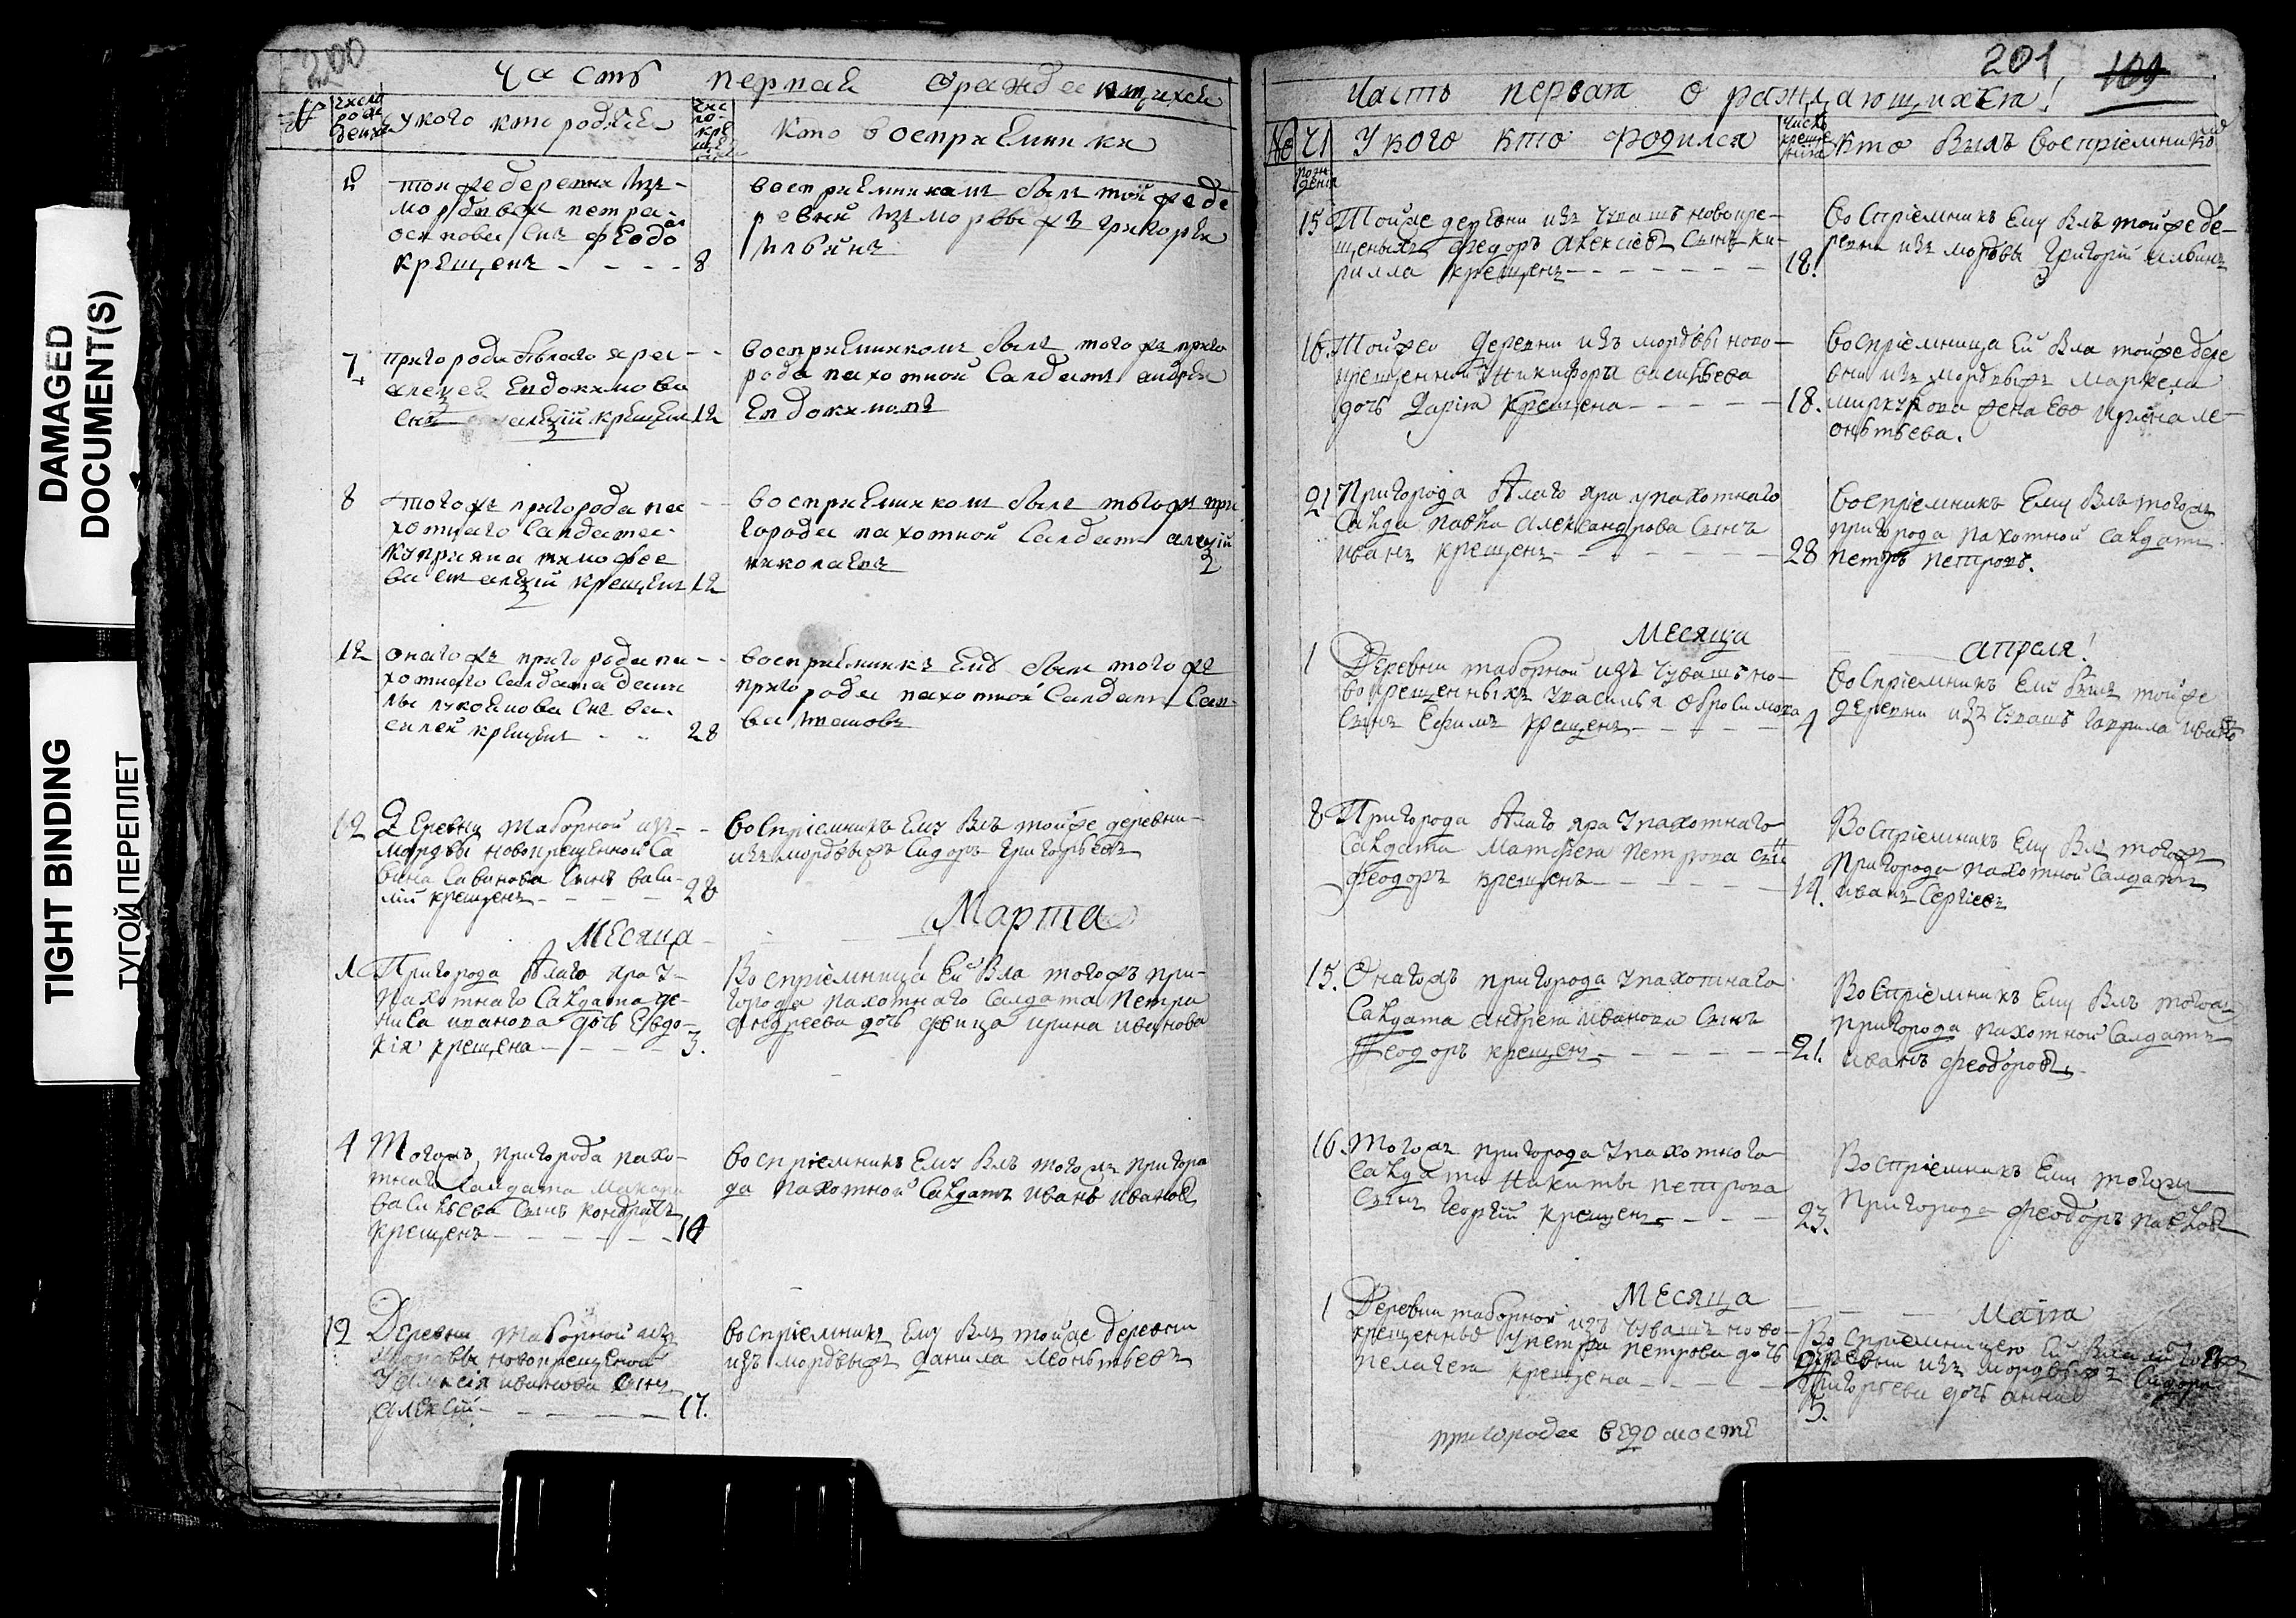 DAMAGED
DOCUMENT(S)
TIGHT BINDING
ТУГОЙ ПЕРЕПЛЕТ
200
Часть первая
№ число рож дения
У кого кто родился
Кто восприемники
той же деревни из
мордвы петра
сы Феодо
крещенъ - - - - 8
восприемникомъ былъ той же де
ревни из мордвы жъ григорей
Ильинъ
7
пригорода белаго яра
Евдокимова
крещенъ 12
восприемникомъ былъ того жъ приго
рода пахотной салдатъ андрей
Евдокимовъ
8
того жъ пригорода па
хотнаго салдата
куприяна тимофее
ва сы крещенъ 12
восприемникомъ былъ того жъ при
города пахотной салдатъ алеѯей
николаевъ
12
онаго жъ пригорода па
хотнаго салдата дани
лы сы ва
силей крещенъ - - 28
восприемникъ Ему былъ того же
пригорода пахотной салдатъ сав
ва
12
Деревни таборной из
мордвы новокрещенной Са
вина Савинова сынъ васи
лій крещенъ - - - - 28
воспріемникъ Ему былъ той же деревни
изъ мордвы жъ Сидоръ Григорьевъ
Месяца Марта
1
Пригорода Белаго яра у
пахотнаго салдата де
ниса иванова дочь Евдо
кія крещена - - - - 3.
Воспріемница Ей была того жъ при
города пахотнаго салдата Петра
Андреева дочь девица ирина иванова
4
Того жъ пригорода пахо
тнаго салдата Макара
васильева сынъ кондратъ
крещенъ - - - - - 10
воспріемникъ Ему былъ того жъ пригоро
да пахотной салдатъ иванъ ивановъ
12
Деревни таборной изъ
мордвы новокрещеной
иванова сынъ
алексій - - - - - 17.
воспріемникъ Ему былъ той же деревни
изъ мордвы жъ данила Леонтьевъ
201 109
Часть первая о раждающихся!
№ Ч рождения
У кого кто родился
число крещения
Кто былъ воспріемникъ
15
Той же деревни изъ чувашъ новокре
щеныхъ федоръ алексіевъ сынъ ки
рилла крещенъ - - - - - 18.
Воспріемникъ Ему былъ той же де
ревни изъ мордвы Григорій ильинъ
16.
Той же деревни изъ мордвы ново
крещенной Никифора васильева
дочь Дарія крещена - - - - 18.
Воспріемница Ей была той же дере
вни изъ мордвы жъ
жена Его ирина ле
онтьева.
21
Пригорода Белаго яра у пахотнаго
салда павла александрова сынъ
иванъ крещенъ - - - - - 28
Воспріемникъ Ему былъ того жъ
пригорода пахотной салдатъ
петръ петровъ.
Месяца апреля!
1
Деревни таборной изъ чувашъ но
вокрещенныхъ у василья
сынъ Ефимъ крещенъ - - - - 4
Воспріемникъ Ему былъ той же
деревни изъ чувашъ гаврила ивановъ
8
Пригорода Белаго яра у пахотнаго
салдата Матфея Петрова сынъ
феодоръ крещенъ - - - - - 14.
Воспріемникъ Ему былъ того жъ
пригорода пахотной салдатъ
иванъ Сергіевъ
15.
Онаго жъ пригорода у пахотнаго
салдата андрея иванова сынъ
Феодоръ крещенъ - - - - - 21.
Воспріемникъ Ему былъ того жъ
пригорода пахотной салдатъ
иванъ феодоровъ
16.
Того жъ пригорода у пахотного
салдата Никиты петрова
сынъ Георгій крещенъ - - - 23.
Воспріемникъ Ему того жъ
пригорода феодоръ павловъ
Месяца Маія
1
Деревни таборной изъ чувашъ ново
крещенные у петра петрова дочь
пелагея крещена - - - - 5.
Воспріемницею Ей
деревни изъ мордвы жъ Сидора
григорьева дочь анна